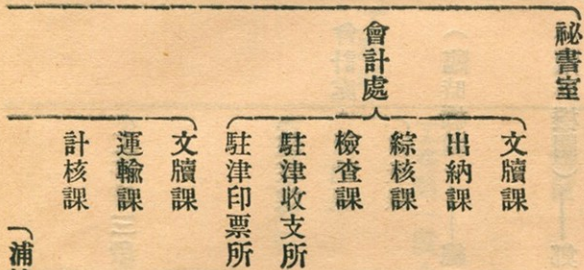 祕書室
會計處
文牘課
出納課
綜核課
檢查課
駐津收支所
駐津印票所
文牘課
運輸課
計核課
浦